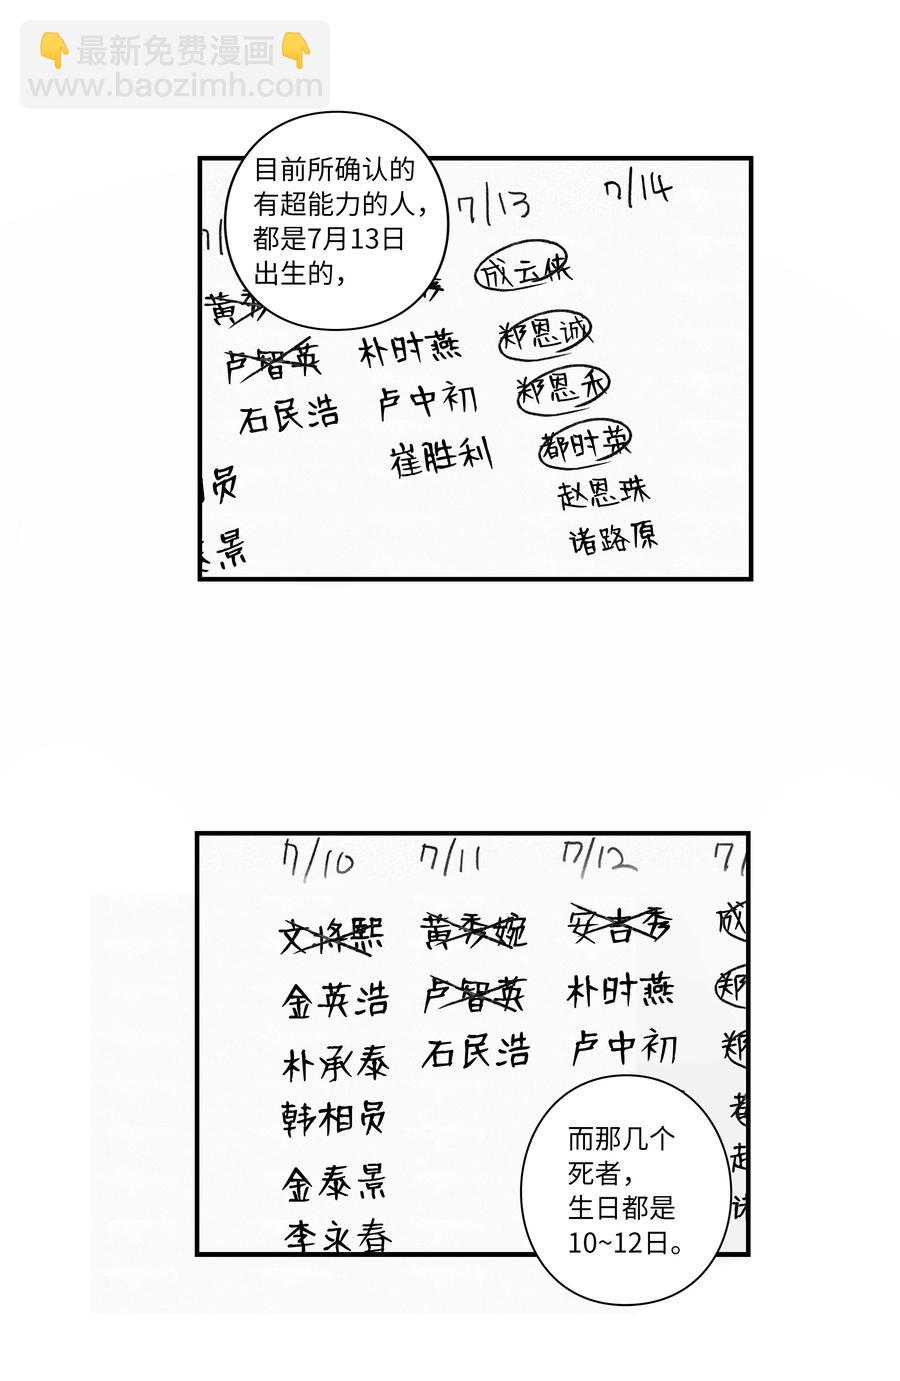 👇最新免费漫画👇
www.baozimh.com
目前所确认的
有超能力的人，
都是7月13日
出生的，
7/13 7/14
黄秀 成云侠
卢智英 朴时燕 郑恩诚
石民浩 卢中初 郑恩禾
崔胜利 都时荧
员 赵恩珠
景 诸路原
7/10 7/11 7/12 7/
文将熙 黄秀婉 安吉秀 成
金英浩 卢智英 朴时燕 郑
朴承泰 石民浩 卢中初 郑
韩相员 都
金泰景 赵
李永春 诸
而那几个
死者，
生日都是
10~12日。